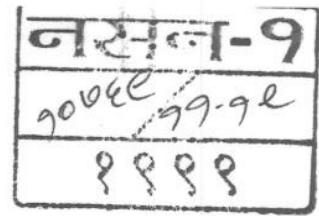 नसन-१
१०७६९ / ११-१९
१९९९